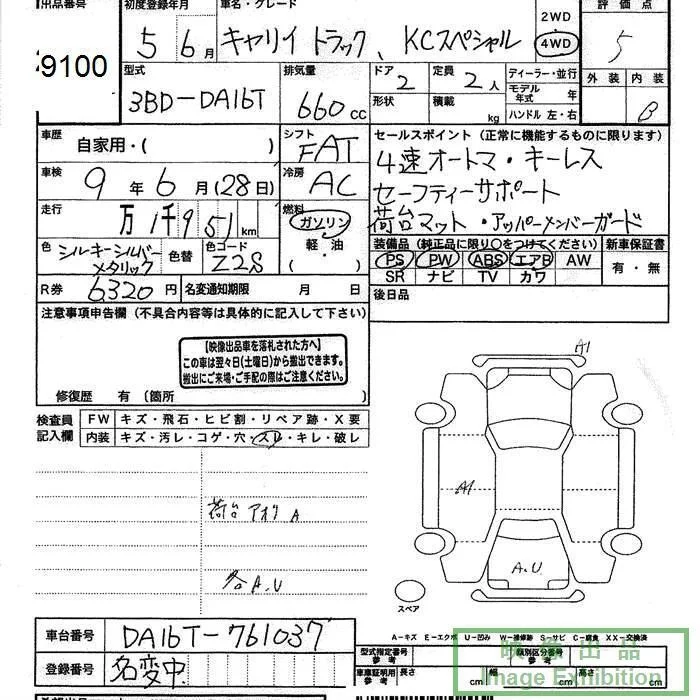 出品番号 初度登録年月 車名・グレード 評価点
9100 5 6月 キャリイ トラック、KCスペシャル 2WD 4WD 5
型式 排気量 ドア 定員 ディーラー・並行 外装 内装
3BD-DA16T 660cc 2 2人 モデル年式 年 B
形状 積載 kg ハンドル 左・右
車歴 自家用・( ) シフト FAT セールスポイント(正常に機能するものに限ります)
車検 9年6月(28日) 冷房 AC 4速オートマ・キーレス
セーフティーサポート
走行 万1千951km 燃料 ガソリン 荷台マット・アッパーメンバーガード
軽・油
( )
色 シルキーシルバーメタリック 色替 色コード Z2S 装備品(純正品に限り○をつけてください) 新車保証書
PS PW ABS エアB AW 有・無
SR ナビ TV カワ
R券 6320円 名変通知期限 月 日 後日品
注意事項申告欄(不具合内容等は具体的に記入して下さい)
【映像出品車を落札された方へ】
この車は翌々日(土曜日)から搬出できます。
搬出にご来場・ご手配の際はご注意ください。
修復歴 有(箇所
検査員記入欄 FW キズ・飛石・ヒビ割・リペア跡・X要
内装 キズ・汚レ・コゲ・穴・スレ・キレ・破レ
A1
A1
荷台アオリ A
各A.U
A.U
スペア
A-キズ E-エクボ U-凹み W-補修跡 S-サビ C-腐食 XX-交換済
車台番号 DA16T-761037
型式指定番号 参考 類別区分番号 参考
登録番号 名変中
車庫証明用 参考 長さ cm 幅 cm 高さ cm
映像出品
Image Exhibition